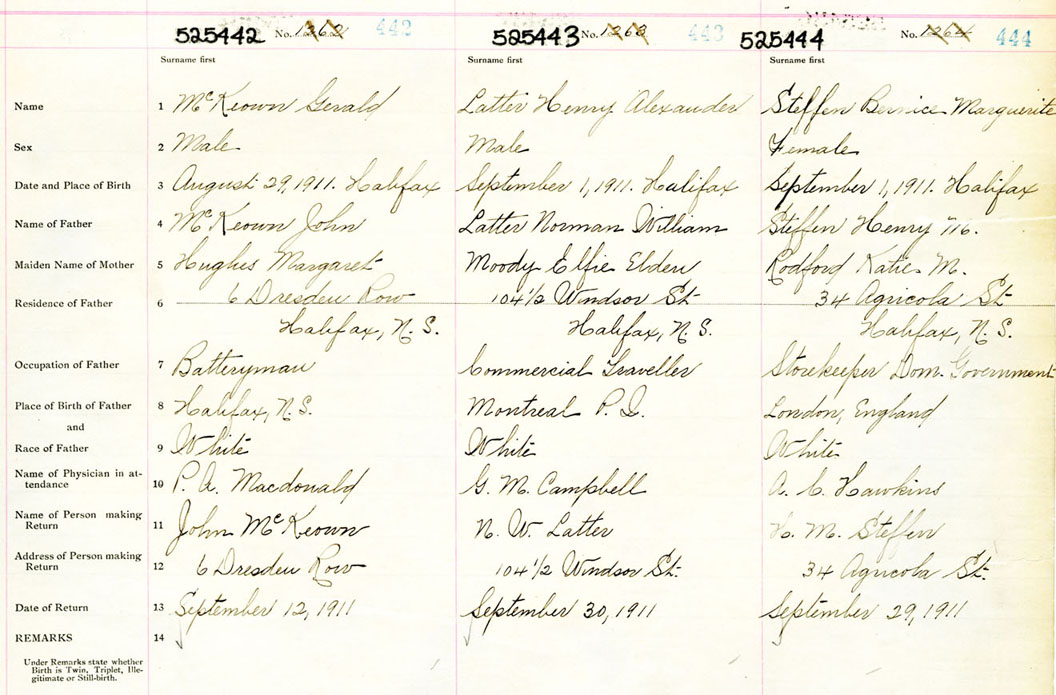 525442 No. 1362 442 525443 No. 1363 443 525444 No. 1364 444
Surname first Surname first Surname first
Name 1 McKeown Gerald Latter Henry Alexander Steffen Bernice Marguerite
Sex 2 Male Male Female
Date and Place of Birth 3 August 29, 1911. Halifax September 1, 1911. Halifax September 1, 1911. Halifax
Name of Father 4 McKeown John Latter Norman William Steffen Henry M.
Maiden Name of Mother 5 Hughes Margaret Moody Effie Elden Rodford Katie M.
Residence of Father 6 6 Dresden Row 104 1/2 Windsor St. 34 Agricola St.
Halifax, N. S. Halifax, N. S. Halifax, N. S.
Occupation of Father 7 Batteryman Commercial Traveller Storekeeper Dom. Government
Place of Birth of Father 8 Halifax, N. S. Montreal P. Q. London, England
and
Race of Father 9 White White White
Name of Physician in at-
tendance 10 P. A. Macdonald G. M. Campbell A. C. Hawkins
Name of Person making
Return 11 John McKeown N. W. Latter H. M. Steffen
Address of Person making
Return 12 6 Dresden Row 104 1/2 Windsor St. 34 Agricola St.
Date of Return 13 September 12, 1911 September 30, 1911 September 29, 1911
REMARKS 14
Under Remarks state whether
Birth is Twin, Triplet, Ille-
gitimate or Still-birth.